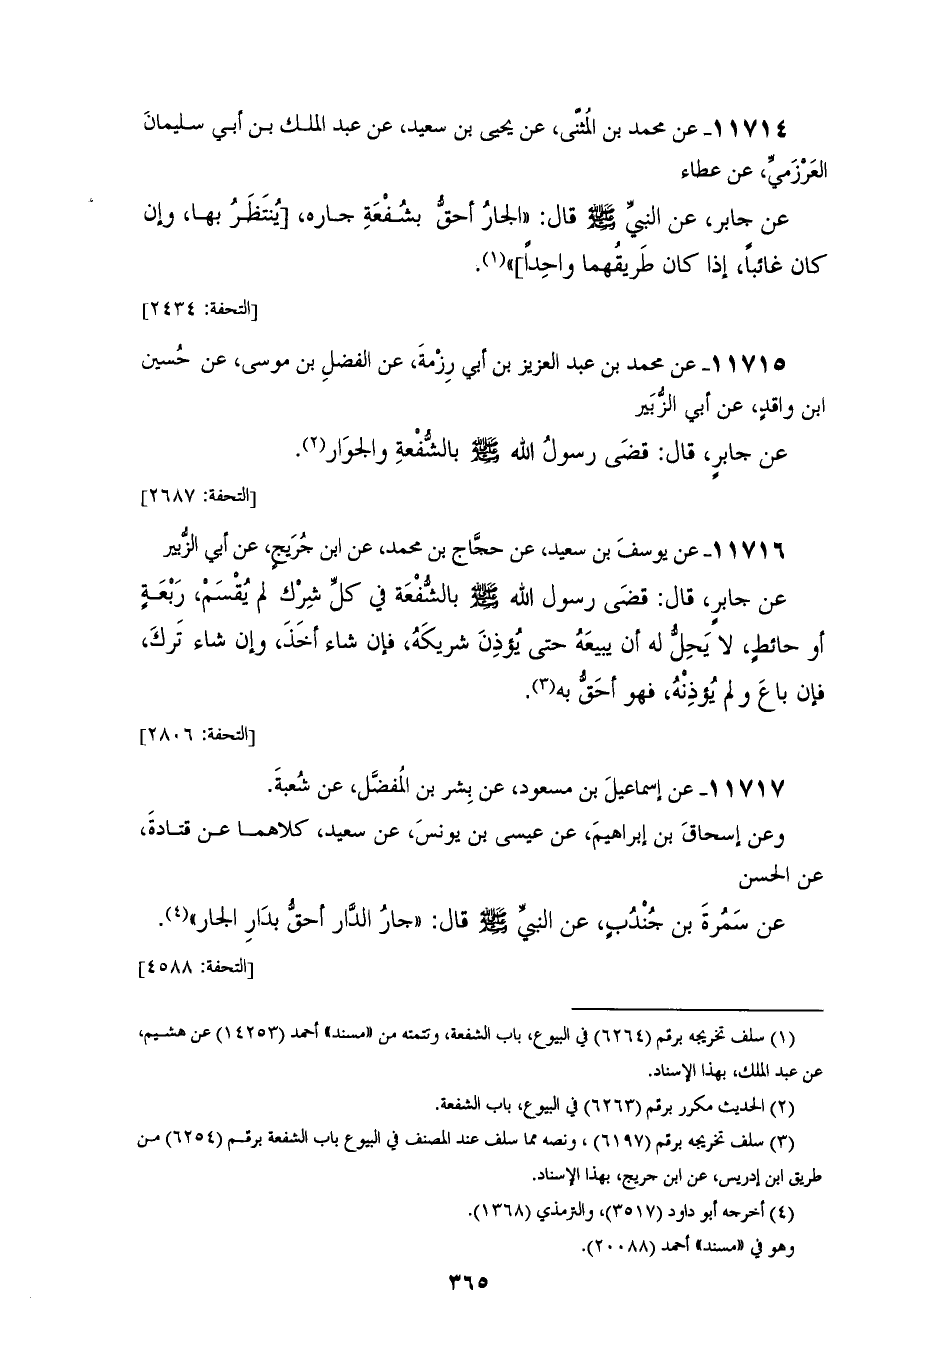 ١١٧١٤ـ عن محمد بن المُثنَّى، عن يحيى بن سعيد، عن عبد الملك بن أبي سليمانَ
العَرْزَميِّ، عن عطاء
عن جابر، عن النبيِّ ﷺ قال: «الجارُ أحقُّ بشُفْعَةِ جاره، [يُنتَظَرُ بها، وإن
كان غائباً، إذا كان طَريقُهما واحِداً]»(١).
[التحفة: ٢٤٣٤]
١١٧١٥ـ عن محمد بن عبد العزيز بن أبي رِزْمةَ، عن الفضلِ بن موسى، عن حُسين
ابن واقدٍ، عن أبي الزُّبَير
عن جابرٍ، قال: قضَى رسولُ الله ﷺ بالشُّفْعةِ والجوَار(٢).
[التحفة: ٢٦٨٧]
١١٧١٦ـ عن يوسفَ بن سعيد، عن حجَّاج بن محمد، عن ابن جُرَيجٍ، عن أبي الزُّبير
عن جابرٍ، قال: قضَى رسول الله ﷺ بالشُّفْعَة في كلِّ شِرْك لم يُقْسَمْ، رَبْعَةٍ
أو حائطٍ، لا يَحِلُّ له أن يبيعَهُ حتى يُؤذِنَ شريكَهُ، فإن شاء أخَذَ، وإن شاء تَركَ،
فإن باعَ ولم يُؤذِنْهُ، فهو أحَقُّ به(٣).
[التحفة: ٢٨٠٦]
١١٧١٧ـ عن إسماعيلَ بن مسعود، عن بِشر بن المُفضَّل، عن شُعبةَ.
وعن إسحاقَ بن إبراهيمَ، عن عيسى بن يونسَ، عن سعيد، كلاهما عن قتادةَ،
عن الحسن
عن سَمُرةَ بن جُنْدُبٍ، عن النبيِّ ﷺ قال: «جارُ الدَّار أحقُّ بدَارِ الجار»(٤).
[التحفة: ٤٥٨٨]
(١) سلف تخريجه برقم (٦٢٦٤) في البيوع، باب الشفعة، وتتمته من «مسند» أحمد (١٤٢٥٣) عن هشيم،
عن عبد الملك، بهذا الإسناد.
(٢) الحديث مكرر برقم (٦٢٦٣) في البيوع، باب الشفعة.
(٣) سلف تخريجه برقم (٦١٩٧) ، ونصه مما سلف عند المصنف في البيوع باب الشفعة برقم (٦٢٥٤) من
طريق ابن إدريس، عن ابن جريج، بهذا الإسناد.
(٤) أخرجه أبو داود (٣٥١٧)، والترمذي (١٣٦٨).
وهو في «مسند» أحمد (٢٠٠٨٨).
٣٦٥